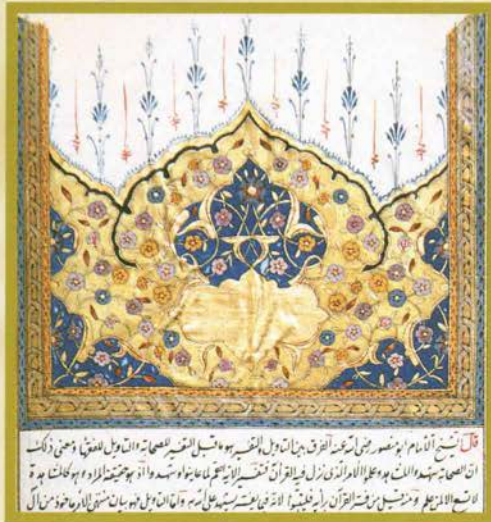 قال الشيخ الامام ابو منصور رضى الله عنه الفرق بين التاويل والتفسير هو ما قيل التفسير للصحابة والتاويل للفقهاء ومعنى ذلك
ان الصحابة شهدوا المشاهد وعلموا الامر الذى نزل فيه القران فتفسير الاية اهم لما عاينوا وشهدوا اذ هو حقيقة المراد وهو كالمشاهدة
لا تسمح الا لمن علم ومنه قيل من فسر القرآن برأيه فليتبوأ لانه فيما يفسر يشهد على الله به واما التاويل فهو بيان منتهى الامر ماخوذ من آل